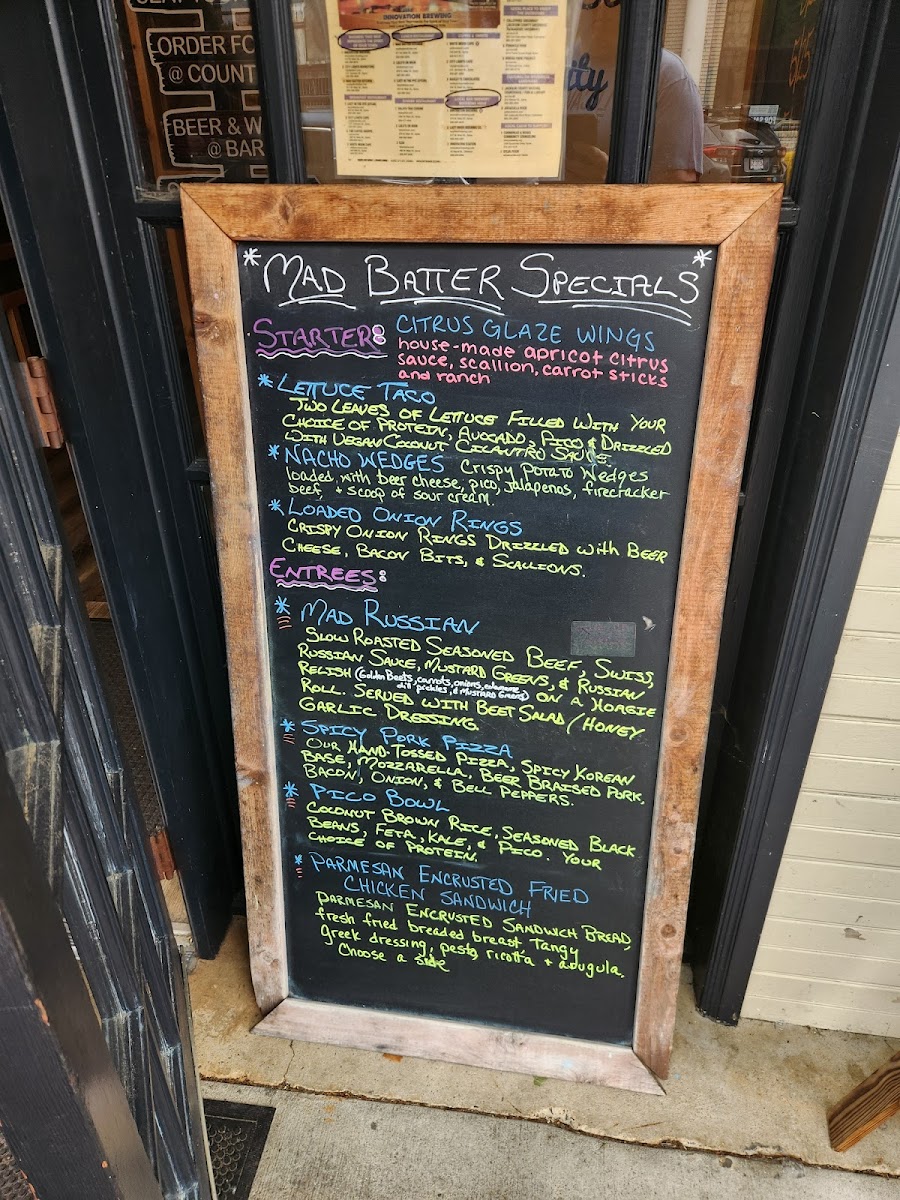 ORDER FO
@ COUNT
BEER & W
@ BAR
INNOVATION BREWING
*MAD BATTER SPECIALS*
STARTER:
CITRUS GLAZE WINGS
house-made apricot citrus
sauce, scallion, carrot sticks
and ranch
* LETTUCE TACO
TWO LEAVES OF LETTUCE FILLED WITH YOUR
CHOICE OF PROTEIN, AVOCADO, PICO & DRIZZLED
WITH VEGAN COCONUT CILANTRO SAUCE.
* NACHO WEDGES Crispy Potato Wedges
loaded with beer cheese, pico, jalapenos, firecracker
beef, + scoop of sour cream.
* LOADED ONION RINGS
CRISPY ONION RINGS DRIZZLED with BEER
CHEESE, BACON BITS, & SCALLIONS.
ENTREES:
* MAD RUSSIAN
SLOW ROASTED SEASONED BEEF, SWISS,
RUSSIAN SAUCE, MUSTARD GREENS, & RUSSIAN
RELISH (Golden Beets, carrots, onions, edamame,
dill pickles, & MUSTARD GREENS) ON A HOAGIE
ROLL. SERVED WITH BEET SALAD / HONEY
GARLIC DRESSING
* SPICY PORK PIZZA
OUR HAND-TOSSED PIZZA, SPICY KOREAN
BASE, MOZZARELLA, BEER BRAISED PORK,
BACON, ONION, & BELL PEPPERS.
* PICO BOWL
COCONUT BROWN RICE, SEASONED BLACK
BEANS, FETA, KALE, & PICO. YOUR
CHOICE OF PROTEIN.
* PARMESAN ENCRUSTED FRIED
CHICKEN SANDWICH
PARMESAN ENCRUSTED SANDWICH BREAD,
fresh fried breaded breast, tangy
greek dressing, pesto, ricotta + arugula.
Choose a side